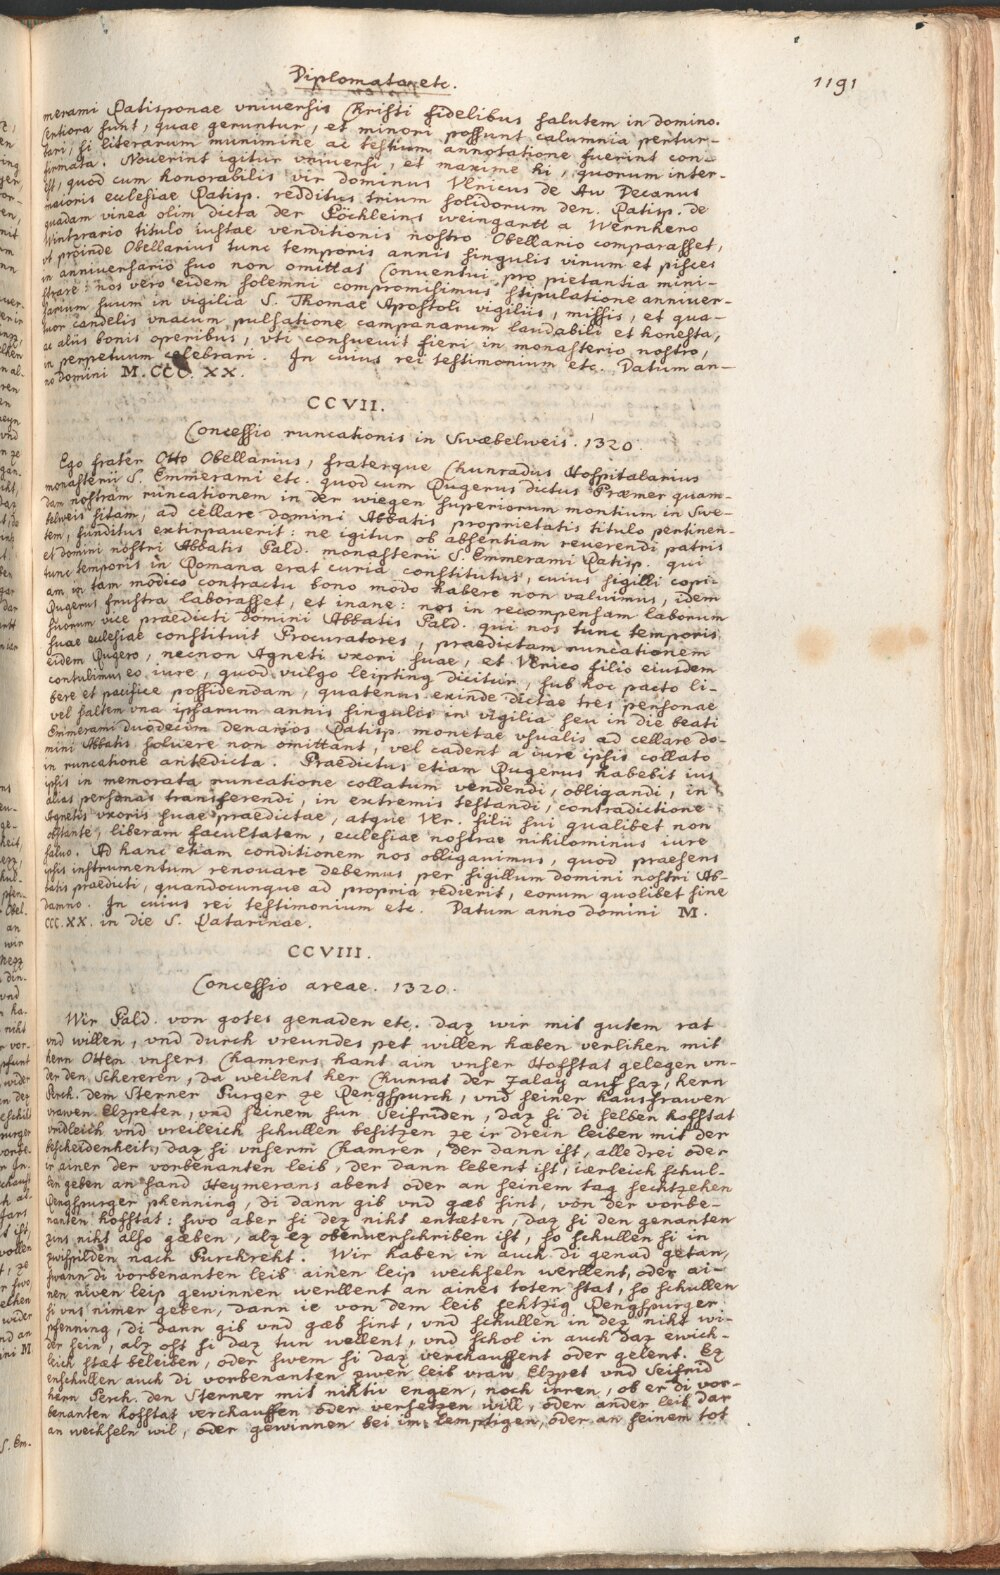 Diplomata etc.
1191
merami Ratisponae vniuersis Christi fidelibus salutem in domino.
Certiora sunt, quae geruntur, et minori possunt calumnia pertur-
bari, si literarum munimine ac testium annotatione fuerint con-
firmata. Nouerint igitur vniuersi, et maxime hi, quorum inter-
est, quod cum honorabilis vir dominus Vlricus de Au Decanus
maioris ecclesiae Ratisp. redditus trium solidorum den. Ratisp. de
quadam vinea olim dicta der Pöchleins weingartt a Wernhero
Wintrario titulo iustae venditionis nostro Obellario comparasset,
vt proinde Obellarius tunc temporis annis singulis vinum et pisces
in anniuersario suo non omittat Conuentui pro pietantia mini-
strare: nos vero eidem solemni compromisimus stipulatione anniuer-
sarium suum in vigilia S. Thomae Apostoli vigiliis, missis, et qua-
tuor candelis vnacum pulsatione campanarum laudabili et honesta,
ac aliis bonis operibus, vti consueuit fieri in monasterio nostro,
in perpetuum celebrari. In cuius rei testimonium etc. Datum an-
no Domini M.CCC.XX.
CCVII.
Concessio runcationis in Swæbelweis. 1320
Ego frater Otto Obellarius, fraterque Chunradus Hospitalarius
monasterii S. Emmerami etc. quod cum Rugerus dictus Præmer quam-
dam nostram runcationem in der wiegen superiorum montium in Swe-
belweis sitam, ad cellare domini Abbatis proprietatis titulo pertinen-
tem, funditus extirpauerit: ne igitur ob absentiam reuerendi patris
et domini nostri Abbatis Bald. monasterii S. Emmerami Ratisp. qui
tunc temporis in Romana erat curia constitutus, cuius sigilli copi-
am in tam modico contractu bono modo habere non valuimus, idem
Rugerus frustra laborasset, et inane: nos in recompensam laborum
suorum vice praedicti domini Abbatis Bald. qui nos tunc temporis
suae ecclesiae constituit Procuratores, praedictam runcationem
eidem Rugero, necnon Agneti vxori suae, et Vlrico filio eiusdem
contulimus eo iure, quod vulgo leipting dicitur, sub hoc pacto li-
bere et pacifice possidendam, quatenus exinde dictae tres personae
vel saltem vna ipsarum annis singulis in vigilia seu in die beati
Emmerami duodecim denarios Ratisp. monetae vsualis ad cellare do-
mini Abbatis soluere non omittant, vel cadent a iure ipsis collato
in runcatione antedicta. Praedictus etiam Rugerus habebit ius
ipsis in memorata runcatione collatum vendendi, obligandi, in
alias personas transferendi, in extremis testandi, contradictione
Agnetis vxoris suae praedictae, atque Vlr. filii sui qualibet non
obstante, liberam facultatem, ecclesiae nostrae nihilominus iure
saluo. Ad hanc etiam conditionem nos obligauimus, quod praesens
ipsis instrumentum renouare debemus per sigillum domini nostri Ab-
batis praedicti, quandocunque ad propria redierit, eorum quolibet sine
damno. In cuius rei testimonium etc. Datum anno domini M.
CCC.XX. in die S. Katarinae.
CCVIII.
Concessio areae. 1320.
Wir Bald. von gotes genaden etc. daz wir mit gutem rat
vnd willen, vnd durch vreundes pet willen haben verlihen mit
hern Otten vnsers Chamrers hant ain vnser Hofstat gelegen vn-
der den Schereren, da weilent her Chunrat der Zalaẏ auf saz, hern
Perch. dem Sterner Purger ze Rengspurch, vnd seiner hausfrawen
vrawen Elzpeten, vnd seinem sun Seifriden, daz si di selben hofstat
vridleich vnd vreileich schullen besitzen ze ir drein leiben mit der
bescheidenheit, daz si vnserm Chamrer, der dann ist, alle drei oder
ir ainer der vorbenanten leib, der dann lebent ist, iærleich schul-
len geben an sand Heymerans abent oder an seinem tag sechtzehen
Rengspurger phenning, di dann gib vnd gæb sint, von der vorbe-
nanten hofstat: swo aber si dez niht entæten, daz si den genanten
zins niht also gæben, alz ez obenuerschriben ist, so schullen si in
zwispilden nach Purchreht. Wir haben in auch di genad getan,
swann di vorbenanten leib ainen leip wechseln werllent, oder ai-
nen niven leip gewinnen werllent an aines toten stat, so schullen
si vns nimer geben, dann ie von dem leib sehtzig Rengspurger
pfenning, di dann gib vnd gæb sint, vnd schullen in dez niht wi-
der sein, alz oft si daz tun wellent, vnd schol in auch daz ewich-
leich stæt beleiben, oder swem si daz verchauffent oder gelent. Ez
enschullen auch di vorbenanten zwen leib vraw Elzpet vnd Seifrid
hern Perch. den Sterner mit nihtiv engen, noch irren, ob er di vor-
benanten hofstat verchauffen oder versetzen will, oder ander leib dar
an wechseln wil, oder gewinnen bei im lemptigen, oder an seinem tot